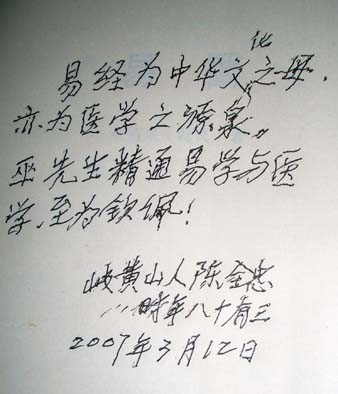 易经为中华文化之母，
亦为医学之源泉。
巫先生精通易学与医
学，至为钦佩！
岐黄山人陈全忠
时年八十有三
2007年3月12日